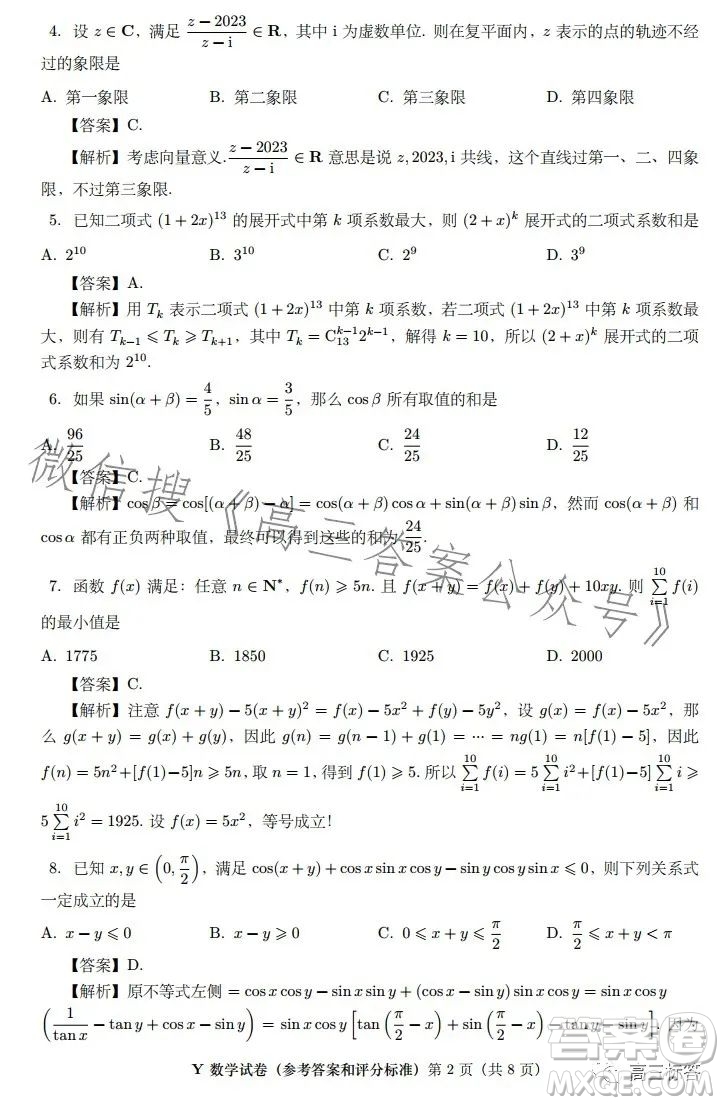 4. 设 z ∈ C，满足 (z − 2023)/(z − i) ∈ R，其中 i 为虚数单位. 则在复平面内，z 表示的点的轨迹不经
过的象限是
A. 第一象限 B. 第二象限 C. 第三象限 D. 第四象限
【答案】C.
【解析】考虑向量意义. (z − 2023)/(z − i) ∈ R 意思是说 z, 2023, i 共线，这个直线过第一、二、四象
限，不过第三象限.
5. 已知二项式 (1 + 2x)^13 的展开式中第 k 项系数最大，则 (2 + x)^k 展开式的二项式系数和是
A. 2^10 B. 3^10 C. 2^9 D. 3^9
【答案】A.
【解析】用 T_k 表示二项式 (1 + 2x)^13 中第 k 项系数，若二项式 (1 + 2x)^13 中第 k 项系数最
大，则有 T_{k−1} ⩽ T_k ⩾ T_{k+1}，其中 T_k = C_13^{k−1} 2^{k−1}，解得 k = 10，所以 (2 + x)^k 展开式的二项
式系数和为 2^10.
6. 如果 sin(α + β) = 4/5，sin α = 3/5，那么 cos β 所有取值的和是
A. 96/25 B. 48/25 C. 24/25 D. 12/25
【答案】C.
【解析】cos β = cos[(α + β) − α] = cos(α + β) cos α + sin(α + β) sin β，然而 cos(α + β) 和
cos α 都有正负两种取值，最终可以得到这些的和为 24/25.
7. 函数 f(x) 满足：任意 n ∈ N*，f(n) ⩾ 5n. 且 f(x + y) = f(x) + f(y) + 10xy. 则 ∑_{i=1}^{10} f(i)
的最小值是
A. 1775 B. 1850 C. 1925 D. 2000
【答案】C.
【解析】注意 f(x + y) − 5(x + y)^2 = f(x) − 5x^2 + f(y) − 5y^2，设 g(x) = f(x) − 5x^2，那
么 g(x + y) = g(x) + g(y)，因此 g(n) = g(n − 1) + g(1) = ⋯ = ng(1) = n[f(1) − 5]，因此
f(n) = 5n^2 + [f(1) − 5]n ⩾ 5n，取 n = 1，得到 f(1) ⩾ 5. 所以 ∑_{i=1}^{10} f(i) = 5 ∑_{i=1}^{10} i^2 + [f(1) − 5] ∑_{i=1}^{10} i ⩾
5 ∑_{i=1}^{10} i^2 = 1925. 设 f(x) = 5x^2，等号成立！
8. 已知 x, y ∈ (0, π/2)，满足 cos(x + y) + cos x sin x cos y − sin y cos y sin x ⩽ 0，则下列关系式
一定成立的是
A. x − y ⩽ 0 B. x − y ⩾ 0 C. 0 ⩽ x + y ⩽ π/2 D. π/2 ⩽ x + y < π
【答案】D.
【解析】原不等式左侧 = cos x cos y − sin x sin y + (cos x − sin y) sin x cos y = sin x cos y
(1/tan x − tan y + cos x − sin y) = sin x cos y [tan(π/2 − x) + sin(π/2 − x) − tan y − sin y]. 因为
Y 数学试卷（参考答案和评分标准）第 2 页（共 8 页）
微信搜《高三答案公众号》
答案圈
高三标答
MXQE.COM